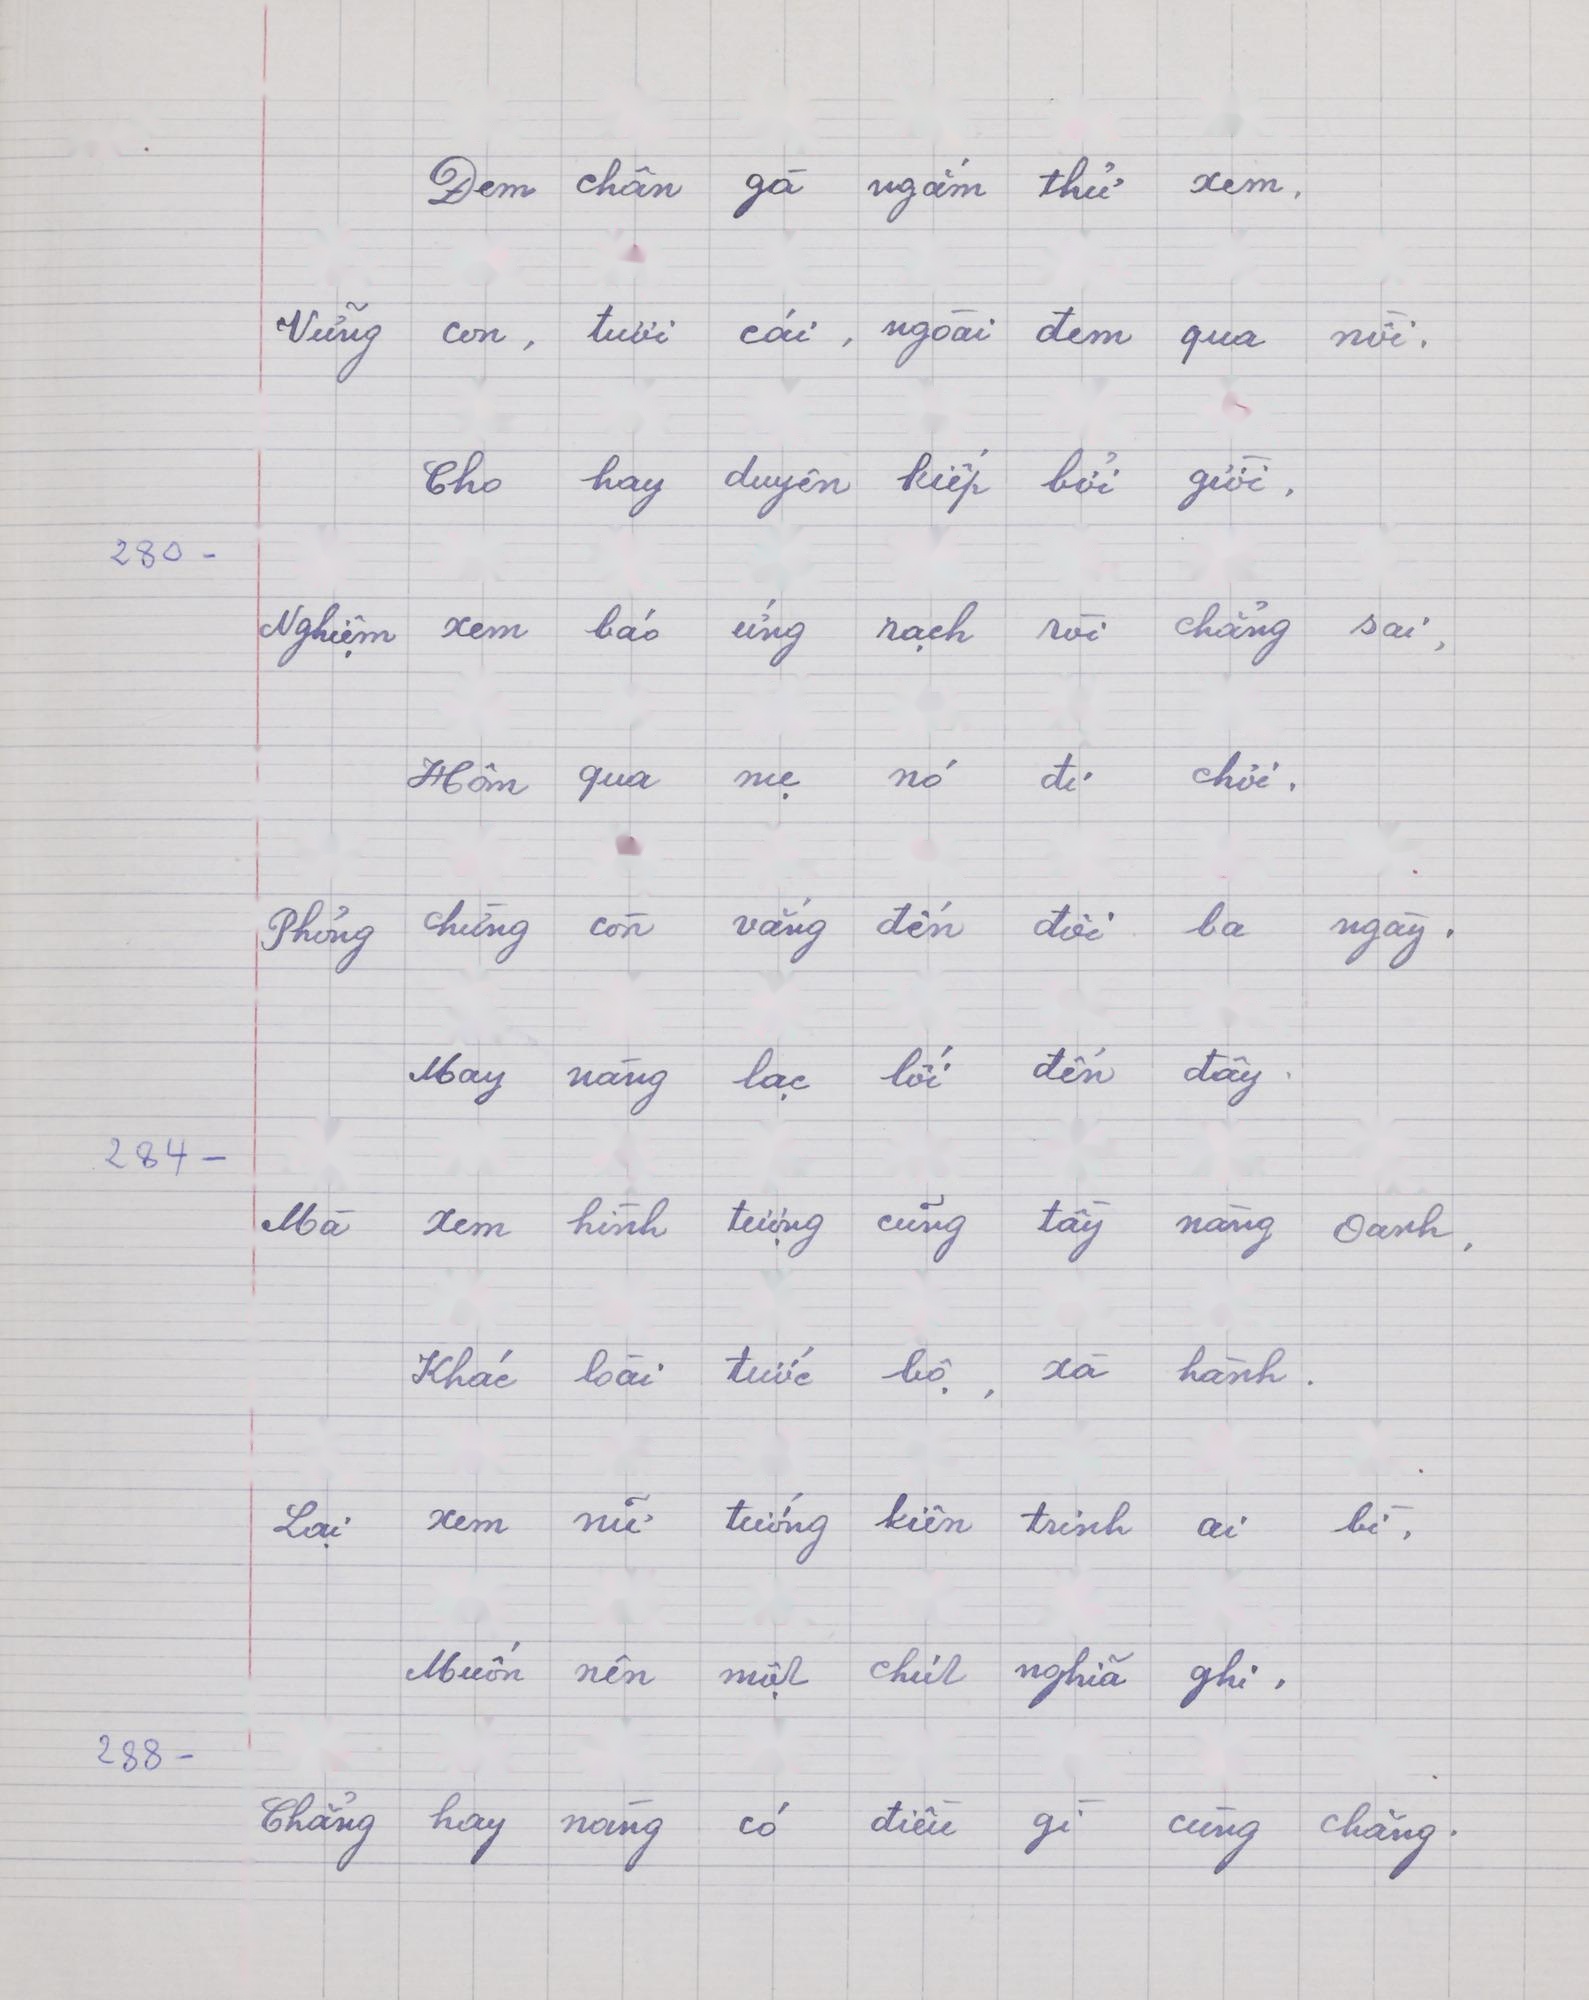 Đem chân gà ngắm thử xem,
Vững con, tươi cái, ngoài đem qua nồi.
Cho hay duyên kiếp bởi giời,
280 -
Nghiệm xem báo ứng rạch ròi chẳng sai,
Hôm qua mẹ nó đi chơi.
Phỏng chừng còn vắng đến đôi ba ngày.
May nàng lạc lối đến đây.
284 -
Mà xem hình tượng cũng tầy nàng Oanh,
Khác loài tước bộ, xà hành.
Lại xem nữ tướng kiên trinh ai bì,
Muốn nên một chút nghĩa ghi,
288 -
Chẳng hay nàng có điều gì cùng chăng.